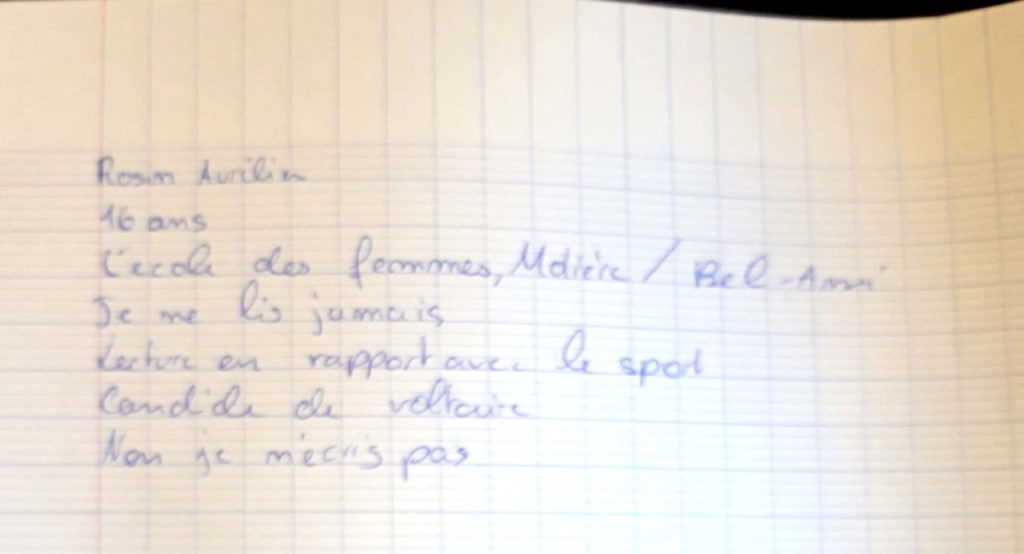 Rosin Aurélien
16 ans
L'école des femmes, Molière / Bel-Ami
Je ne lis jamais
Lecture en rapport avec le sport
Candide de voltaire
Non je n'écris pas